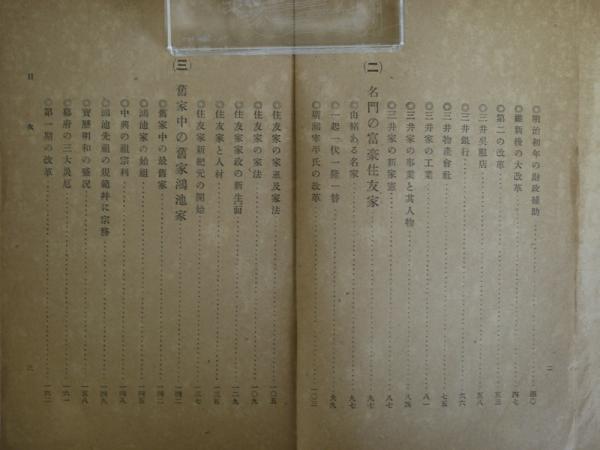 ◎明治初年の財政補助……四〇
◎維新後の大改革……四七
◎第二の改革……五三
◎三井呉服店……五八
◎三井銀行……六六
◎三井物産會社……七五
◎三井家の工業……八一
◎三井家の事業と其人物……八四
◎三井家の新家憲……八七
(二) 名門の富豪住友家……九七
◎由緒ある名家……九七
◎一起一伏一隆一替……九九
◎廣瀬宰平氏の改革……一〇三
二
◎住友家の家憲及家法……一〇五
◎住友家の家法……一〇九
◎住友家家政の新生面……一二九
◎住友家と人材……一三五
◎住友家新紀元の開始……一三七
(三) 舊家中の舊家鴻池家……一四二
◎舊家中の最舊家……一四二
◎鴻池家の始祖……一四五
◎中興の祖宗利……一四八
◎鴻池先祖の規範幷に宗務……一四九
◎寶曆明和の盛況……一五八
◎幕府の三大災厄……一六一
◎第一期の改革……一六二
目次
三